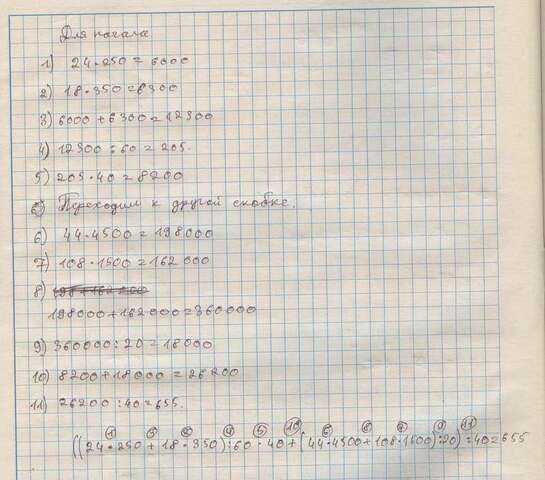 Для начала
1) 24·250=6000
2) 18·350=6300
3) 6000+6300=12300
4) 12300:60=205.
5) 205·40=8200
6) Переходим к другой скобке.
6) 44·4500=198000
7) 108·1500=162000
8)
198000+162000=360000
9) 360000:20=18000
10) 8200+18000=26200
11) 26200:40=655.
1 3 2 4 5 10 6 8 7 9 11
((24·250+18·350):60·40+(44·4500+108·1500):20):40=655